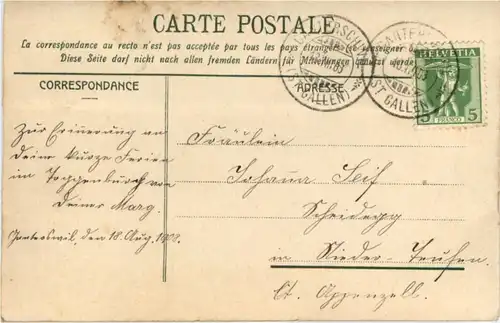 CARTE POSTALE
La correspondance au recto n'est pas acceptée par tous les pays étrangers (se renseigner
Diese Seite darf nicht nach allen fremden Ländern für Mitteilungen benutzt werde
CORRESPONDANCE
ADRESSE
(ST GALLEN)
(ST GALLEN)
HELVETIA
5 FRANCO 5
Zur Erinnerung an
Deine kurze Ferien
im Toggenburg von
Deiner Marg.
Ganterswil, den 18. Aug. 1908.
Fräulein
Johana
Scheidegg
in Nieder-Teufen
Ct. Appenzell.